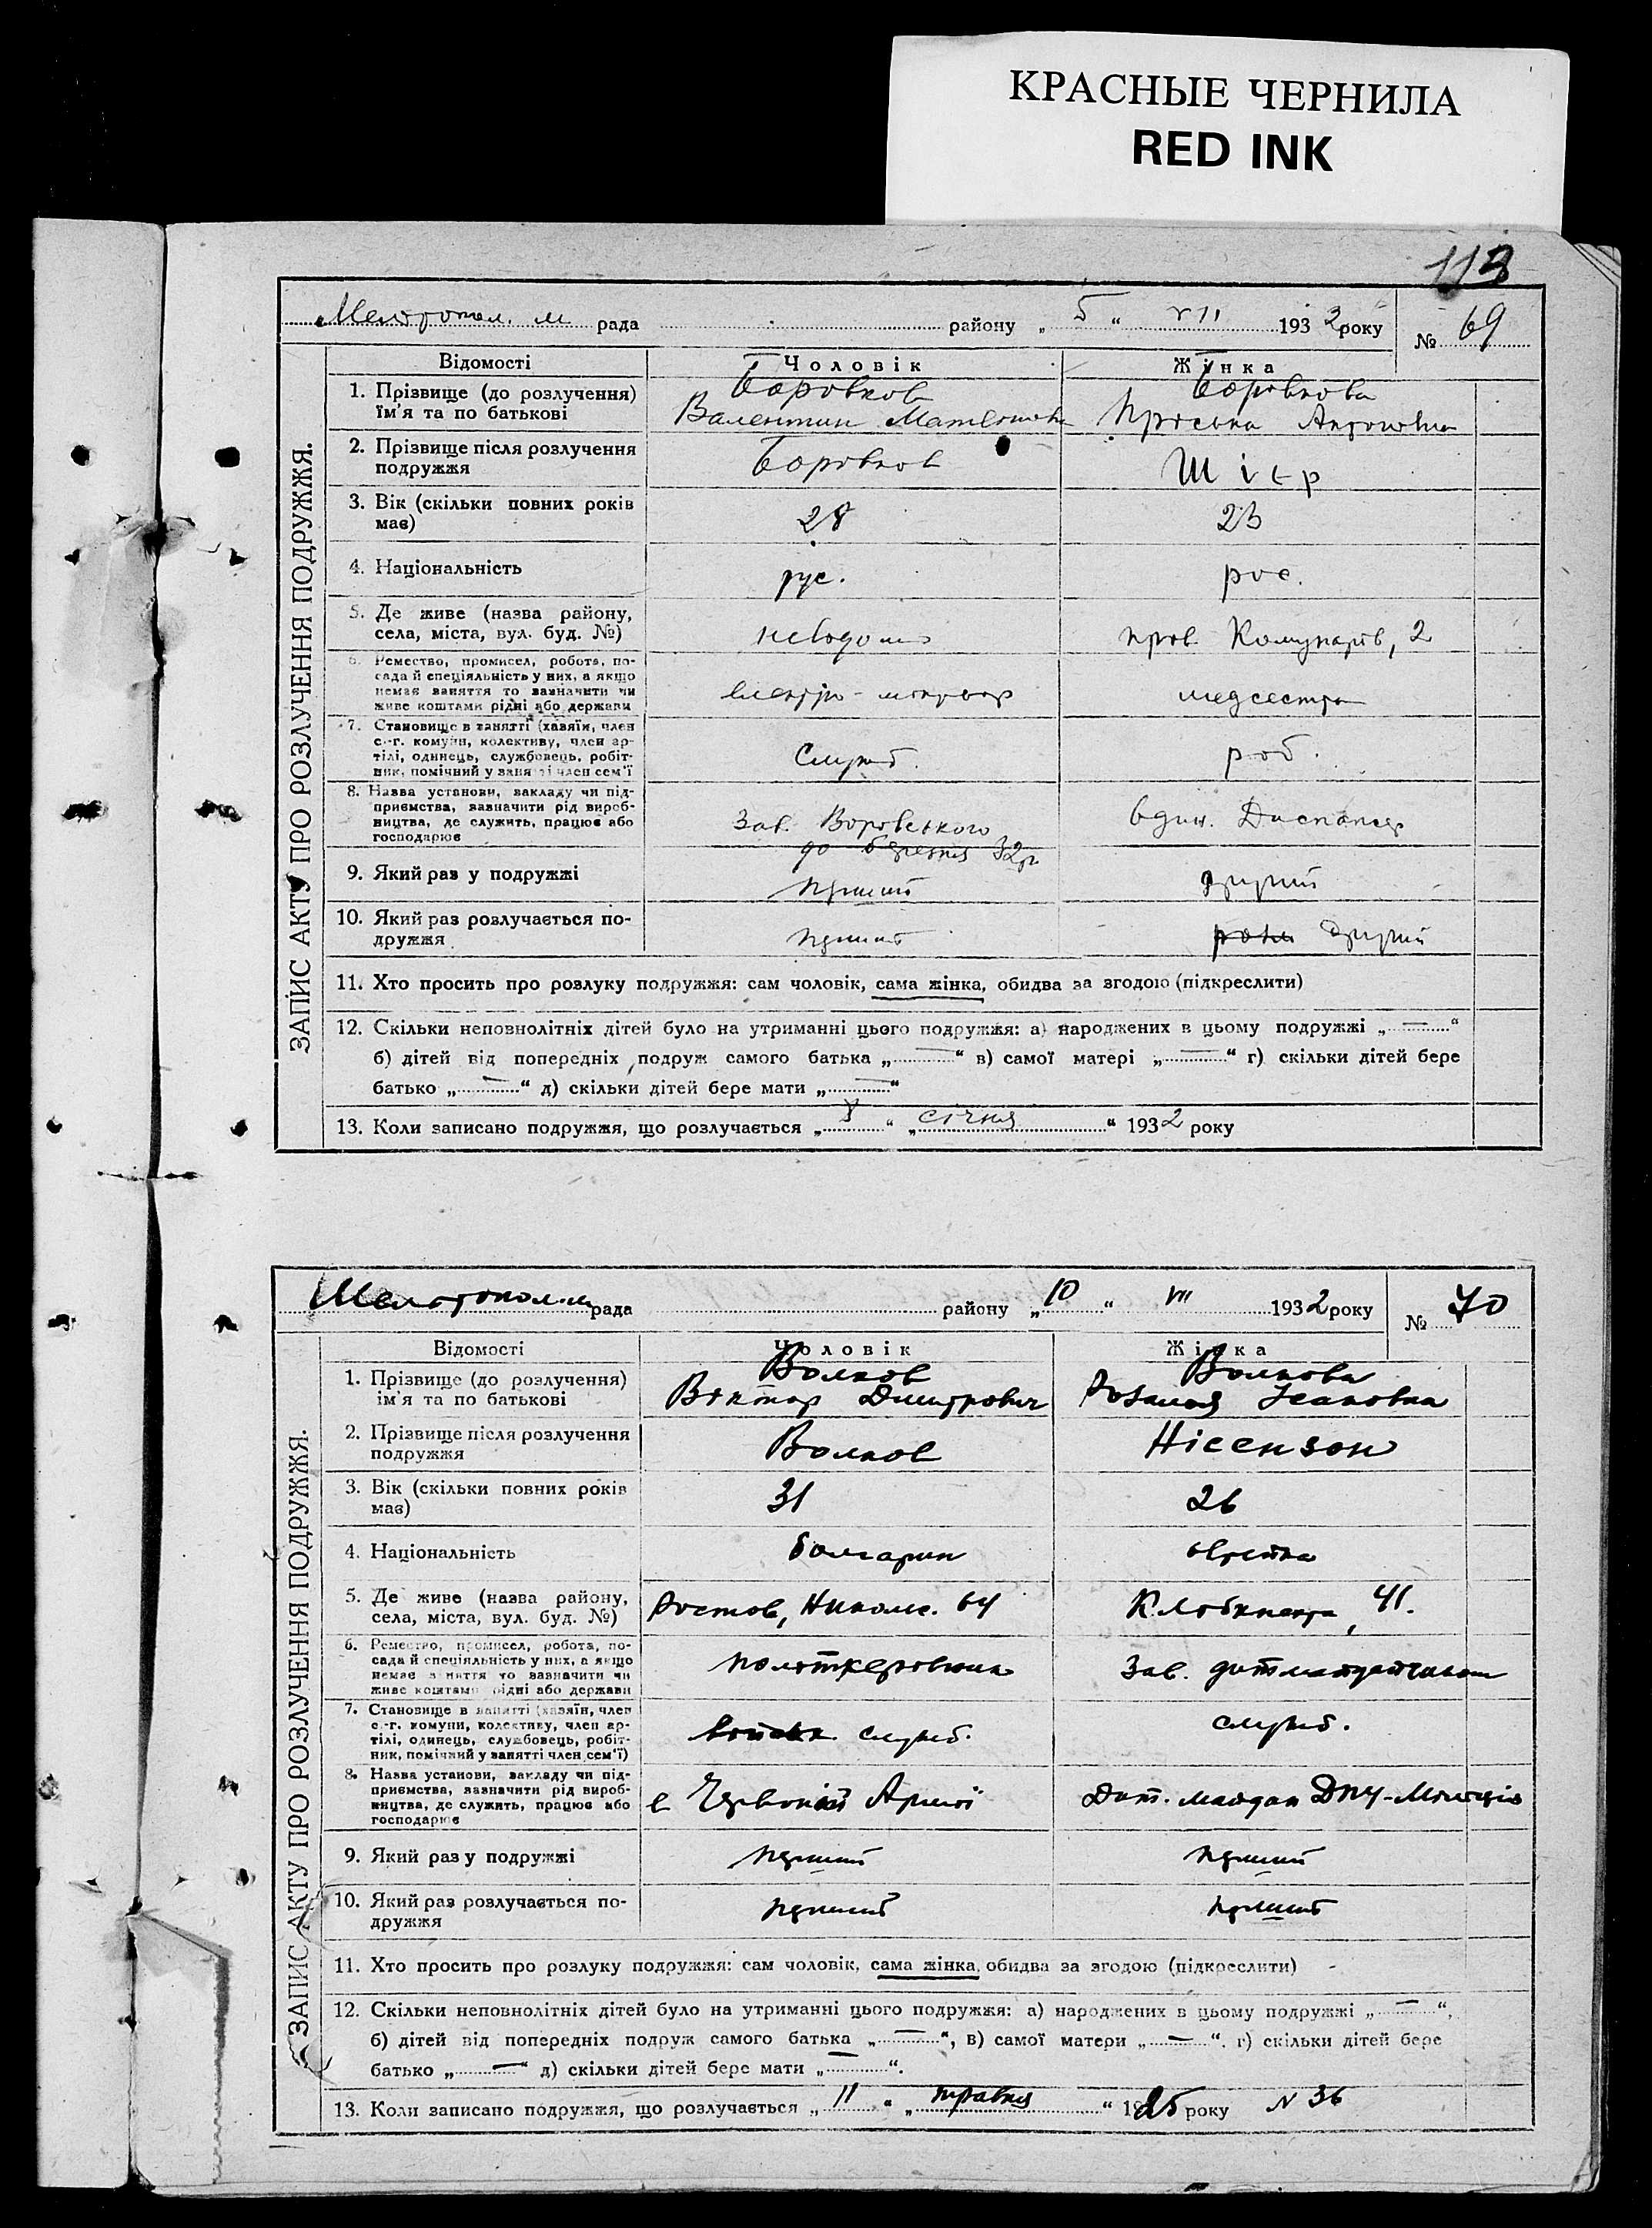 КРАСНЫЕ ЧЕРНИЛА
RED INK
113
Мелітопол. м рада району „5“ VII 1932 року № 69
ЗАПИС АКТУ ПРО РОЗЛУЧЕННЯ ПОДРУЖЖЯ.
Відомості Чоловік Жінка
1. Прізвище (до розлучення) Боровков Боровкова
ім'я та по батькові Валентин Антонівна
2. Прізвище після розлучення подружжя Боровков
3. Вік (скільки повних років має) 28 23
4. Національність рус. рос.
5. Де живе (назва району, невідомо пров. Комунарів, 2
села, міста, вул. буд. №)
6. Ремество, промисел, робота, по-
сада й спеціяльність у них, а якщо
немає заняття то зазначити чи електро-монтьор медсестра
живе коштами рідні або держави
7. Становище в занятті (хазяїн, член
с.-г. комуни, колективу, член ар-
тілі, одинець, службовець, робіт- Служб. роб.
ник, помічний у занятті член сем'ї
8. Назва установи, закладу чи під-
приємства, зазначити рід вироб- Зав. Воровського Диспансер
ництва, де служить, працює або
господарює до березня 32р
9. Який раз у подружжі перший другий
10. Який раз розлучається по- перший другий
дружжя
11. Хто просить про розлуку подружжя: сам чоловік, сама жінка, обидва за згодою (підкреслити)
12. Скільки неповнолітніх дітей було на утриманні цього подружжя: а) народжених в цьому подружжі „—“
б) дітей від попередніх подруж самого батька „—“ в) самої матері „—“ г) скільки дітей бере
батько „—“ д) скільки дітей бере мати „—“
13. Коли записано подружжя, що розлучається „ “ „січня“ 1932 року
Мелітопол. м рада району „10“ VII 1932 року № 70
ЗАПИС АКТУ ПРО РОЗЛУЧЕННЯ ПОДРУЖЖЯ.
Відомості Чоловік Жінка
1. Прізвище (до розлучення) Волков Волкова
ім'я та по батькові Віктор Дмитрович Розалія Ісаковна
2. Прізвище після розлучення Волков Нісензон
подружжя
3. Вік (скільки повних років 31 26
має)
4. Національність болгарин єврейка
5. Де живе (назва району, Ростов, Никольс. 64 К. Лібкнехта, 41.
села, міста, вул. буд. №)
6. Ремество, промисел, робота, по-
сада й спеціяльність у них, а якщо політкерівник Зав. дитмайданчиком
немає заняття то зазначити чи
живе коштами рідні або держави
7. Становище в занятті (хазяїн, член
с.-г. комуни, колективу, член ар- служб. служб.
тілі, одинець, службовець, робіт-
ник, помічний у занятті член сем'ї)
8. Назва установи, закладу чи під-
приємства, зазначити рід вироб- в Червоній Армії Дит. майдан ДПУ-Міліція
ництва, де служить, працює або
господарює
9. Який раз у подружжі перший перший
10. Який раз розлучається по- перший перший
дружжя
11. Хто просить про розлуку подружжя: сам чоловік, сама жінка, обидва за згодою (підкреслити)
12. Скільки неповнолітніх дітей було на утриманні цього подружжя: а) народжених в цьому подружжі „—“,
б) дітей від попередніх подруж самого батька „—“, в) самої матери „—“. г) скільки дітей бере
батько „—“ д) скільки дітей бере мати „—“.
13. Коли записано подружжя, що розлучається „11“ „травня“ 1925 року N 36